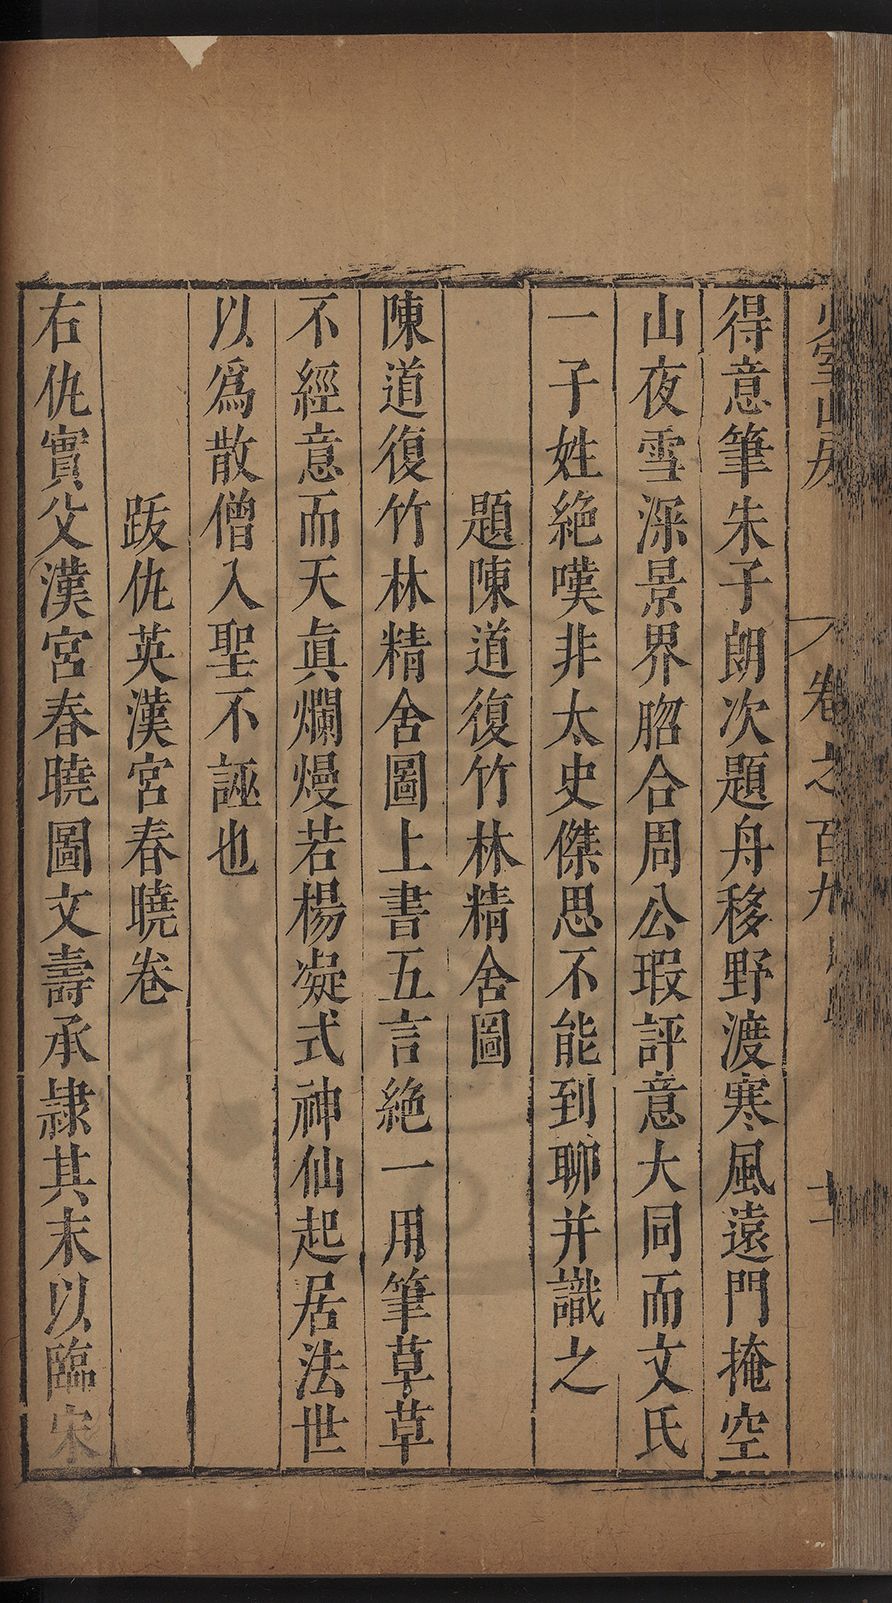 卷之百九
得意筆朱子朗次題舟移野渡寒風遠門掩空
山夜雪深景界脗合周公瑕評意大同而文氏
一子姓絶嘆非太史傑思不能到聊并識之
題陳道復竹林精舍圖
陳道復竹林精舍圖上書五言絶一用筆草草
不經意而天眞爛熳若楊凝式神仙起居法世
以爲散僧入聖不誣也
跋仇英漢宮春曉卷
右仇實父漢宮春曉圖文壽承隷其末以臨宋